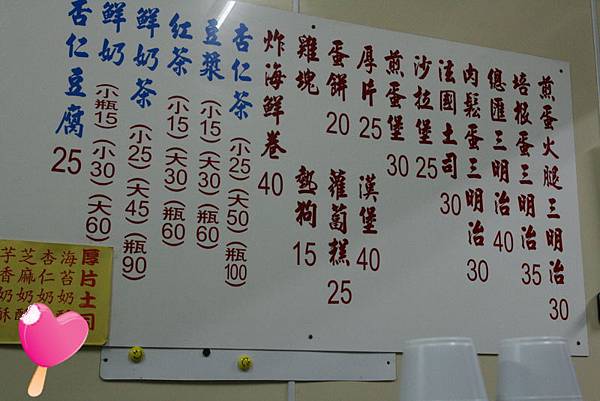 煎蛋火腿三明治 30
培根蛋三明治 35
總匯三明治 40
肉鬆蛋三明治 30
法國土司 30
沙拉堡 25
煎蛋堡 30
厚片 25
漢堡 40
蛋餅 20
蘿蔔糕 25
雞塊
熱狗 15
炸海鮮卷 40
杏仁茶 (小25) (大50) (瓶100)
豆漿 (小15) (大30) (瓶60)
紅茶 (小15) (大30) (瓶60)
鮮奶茶 (小25) (大45) (瓶90)
鮮奶 (小瓶15) (小30) (大60)
杏仁豆腐 25
厚片土司
海苔奶
杏仁奶
芝麻奶酥
芋香奶酥